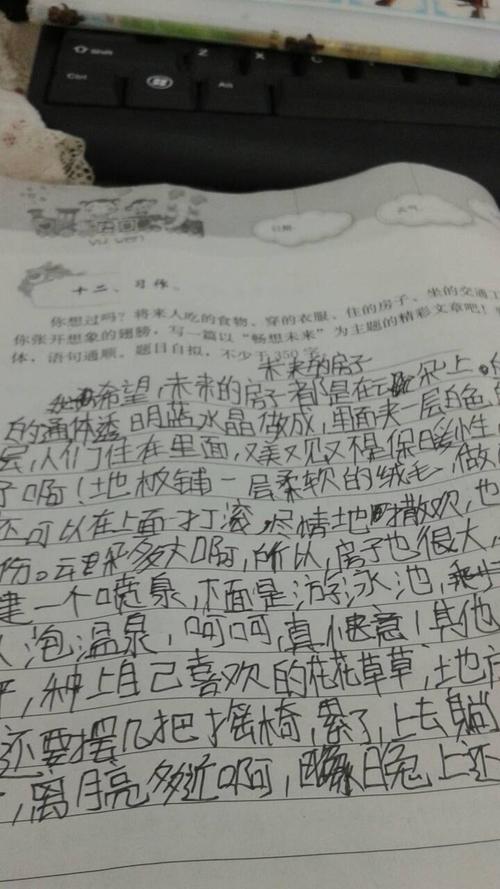 Shift
Z
X
C
Ctrl
Alt
日期
天气
十二、习作。
你想过吗？将来人吃的食物、穿的衣服、住的房子、坐的交通工
你张开想象的翅膀，写一篇以“畅想未来”为主题的精彩文章吧！
体，语句通顺。题目自拟，不少于350字。
未来的房子
希望，未来的房子都是在云朵上。
的通体透明蓝水晶做成，里面夹一层白色
层，人们住在里面，又美观又保暖性，
子啊！地板铺一层柔软的绒毛，做
还可以在上面打滚，尽情地撒欢，也
伤。云彩多大啊，所以，房子也很大，
建一个喷泉，下面是游泳池，
泡温泉，呵呵，真惬意！其他
种上自己喜欢的花花草草，地
还要摆几把摇椅，累了，上去躺
，离月亮多近啊，晚上还